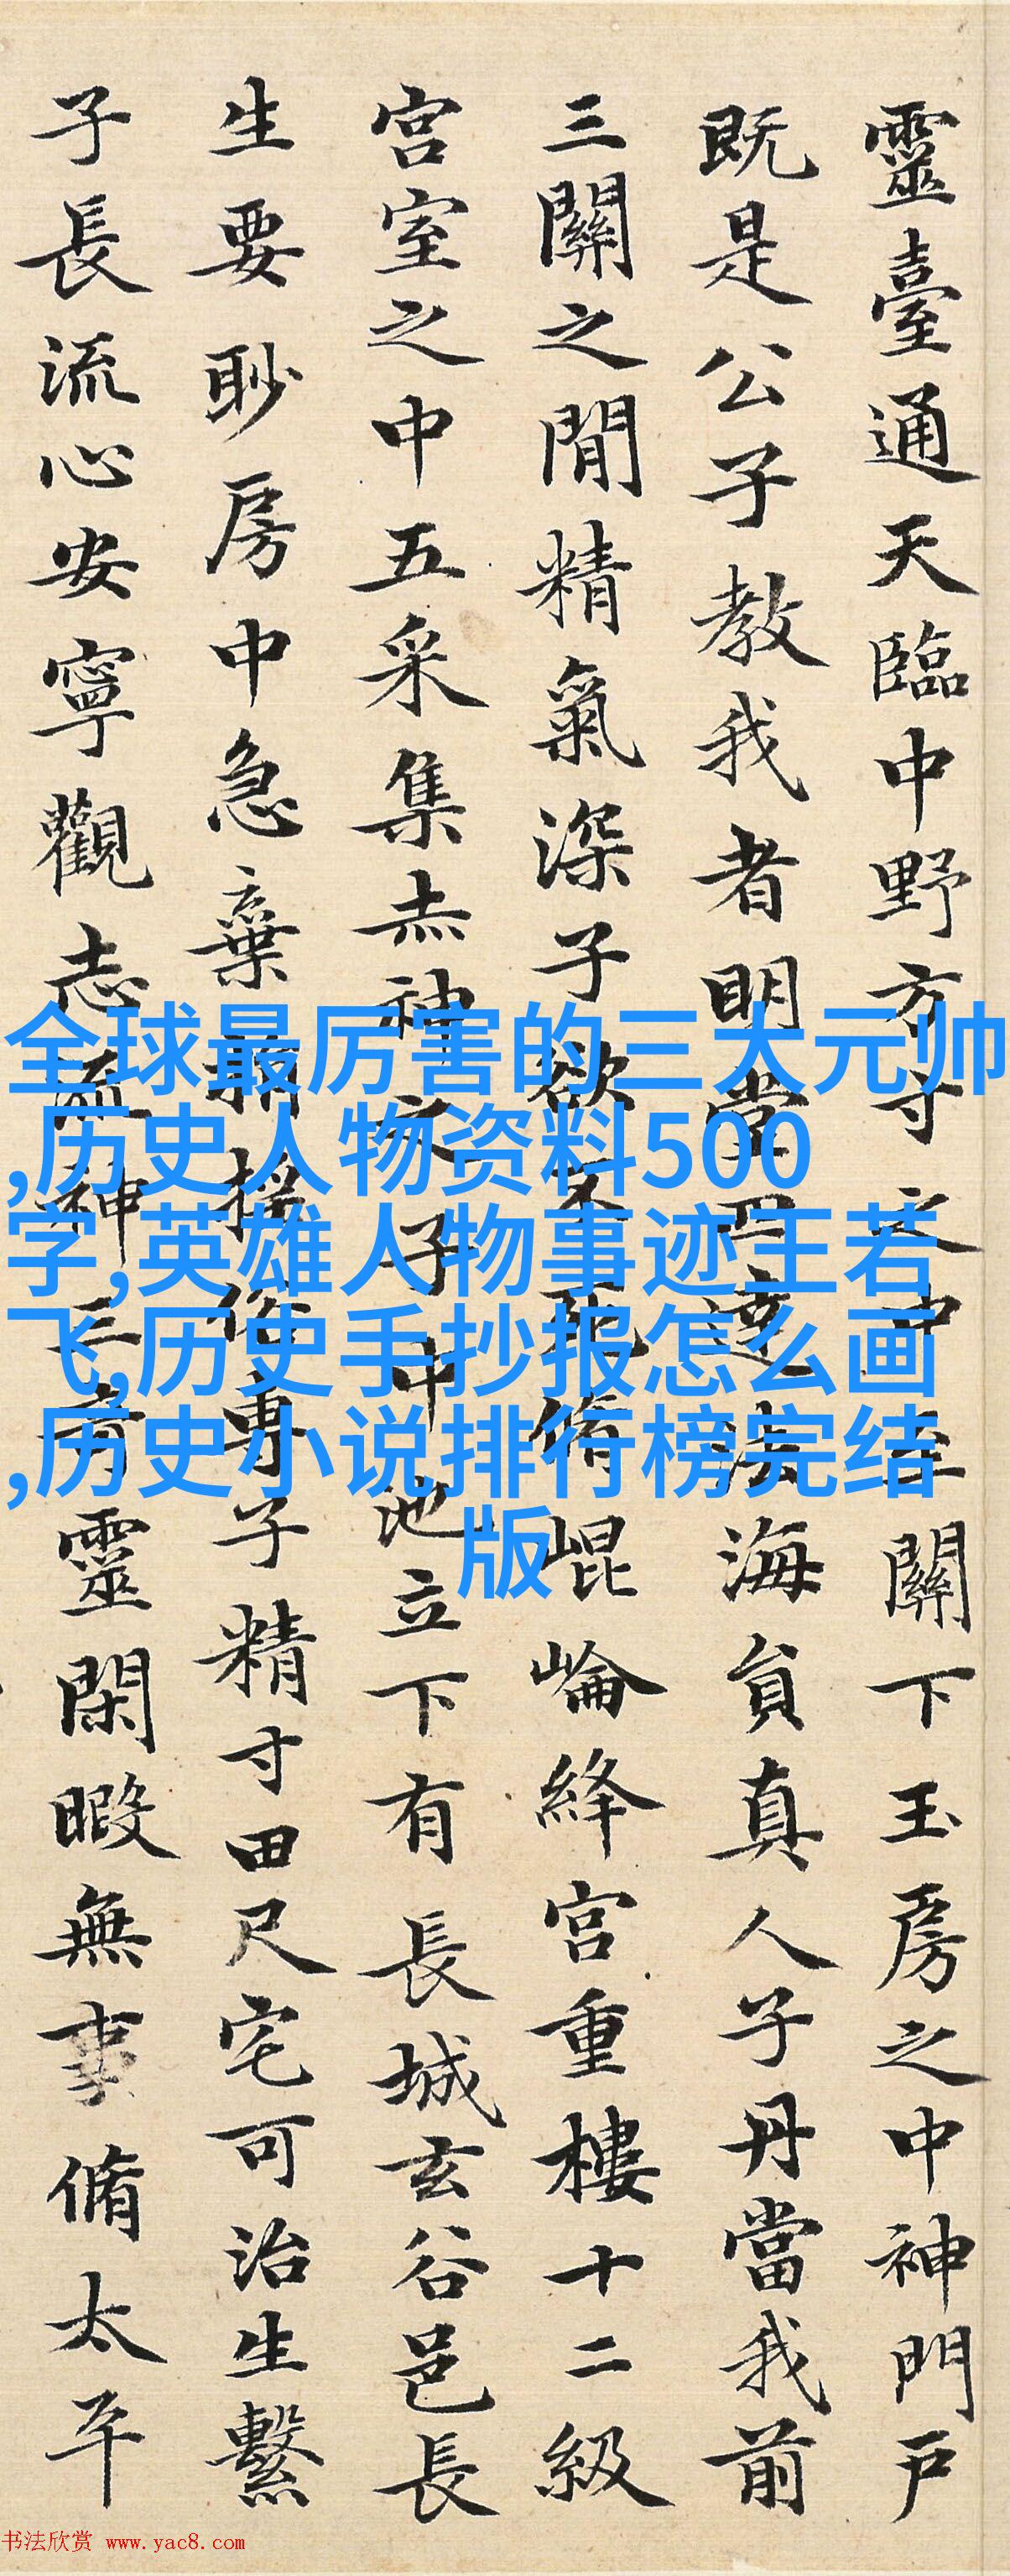 靈臺通天臨中野方寸之中至關下玉房之中神門戶
既是公子教我者明堂四達法海員真人子丹當我前
三關之閒精氣深子欲不死脩崐崘絳宮重樓十二級
宮室之中五采集赤神之子中池立下有長城玄谷邑長
生要眇房中急棄捐搖俗專子精寸田尺宅可治生繫
子長流心安寧觀志神三奇靈閑暇無事脩太平
全球最厉害的三大元帅
,历史人物资料500
字,英雄人物事迹王若
飞,历史手抄报怎么画
,历史小说排行榜完结
版
书法欣赏 www.yac8.com